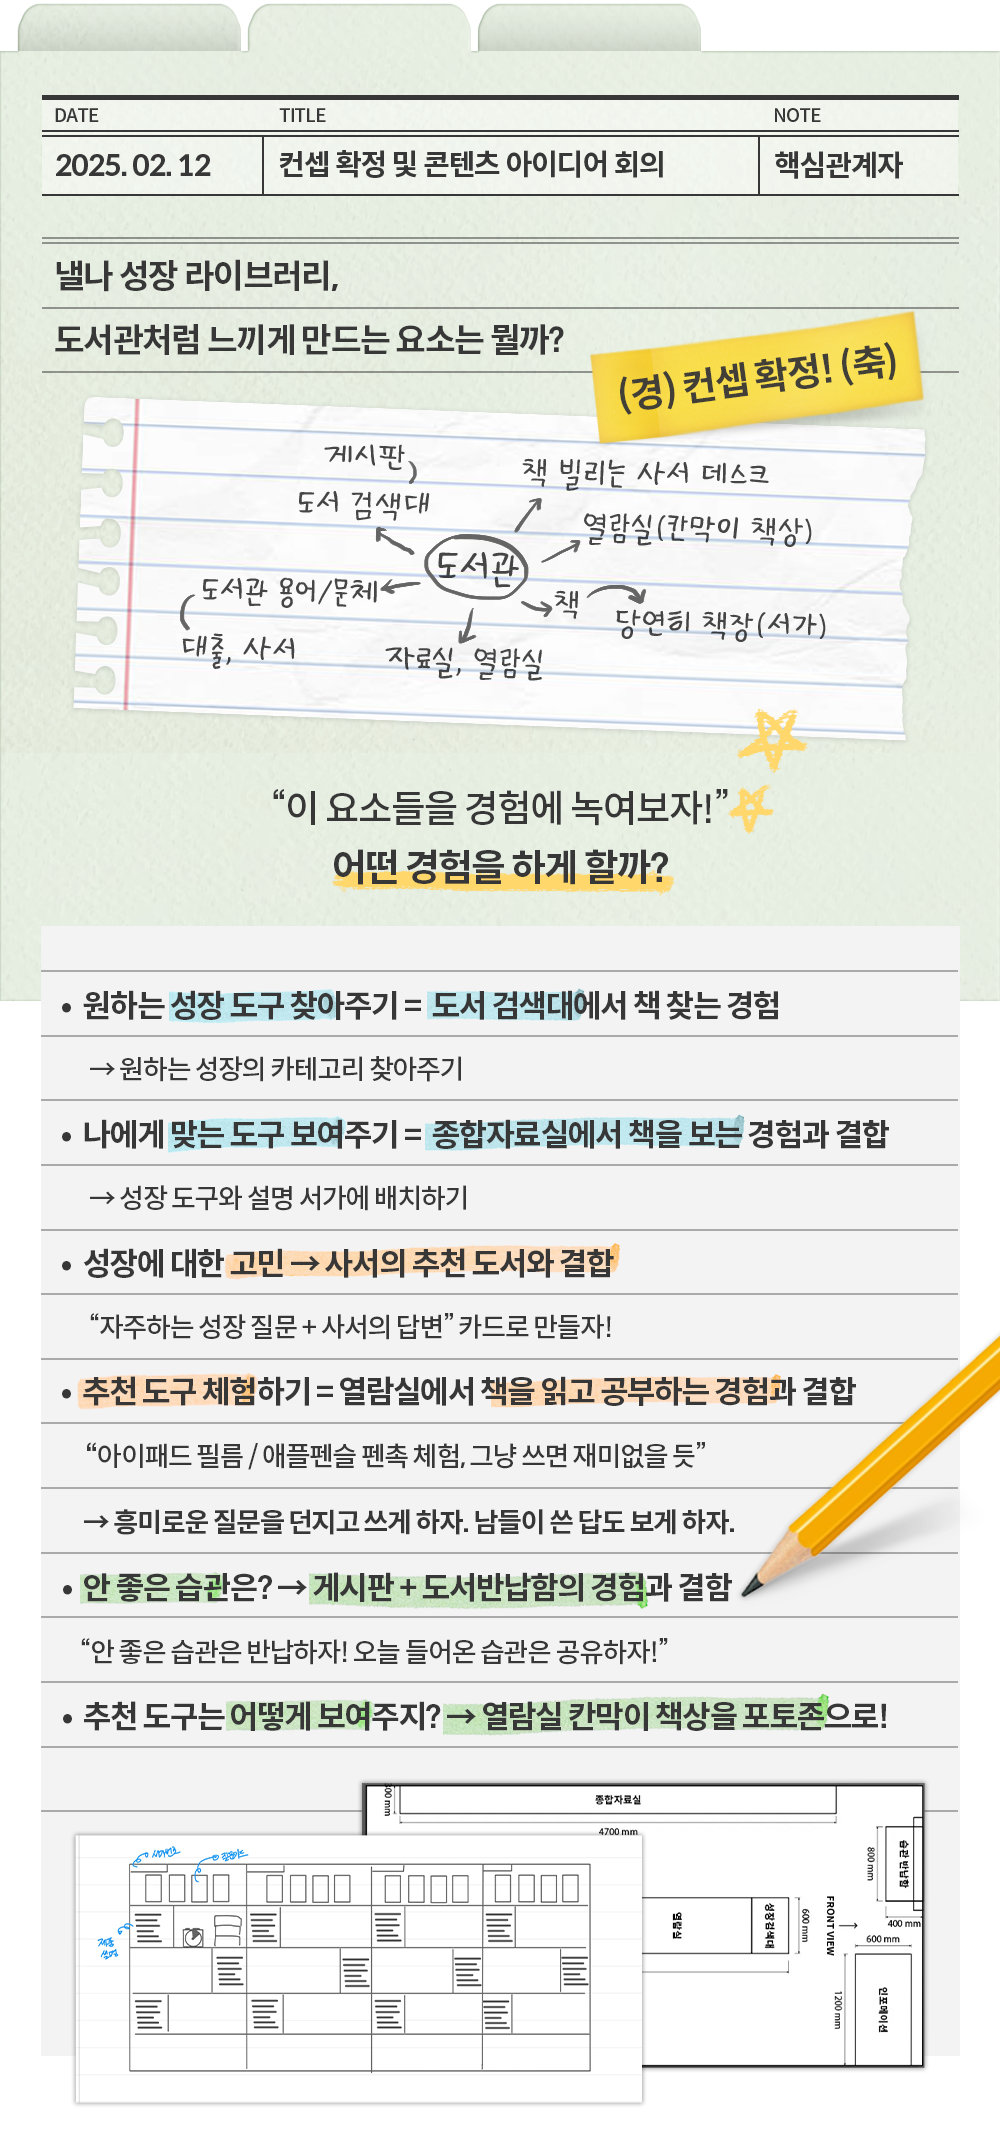 DATE TITLE NOTE
2025. 02. 12 컨셉 확정 및 콘텐츠 아이디어 회의 핵심관계자
낼나 성장 라이브러리,
도서관처럼 느끼게 만드는 요소는 뭘까?
(경) 컨셉 확정! (축)
게시판
도서 검색대
책 빌리는 사서 데스크
열람실(칸막이 책상)
도서관
도서관 용어/문체
책
당연히 책장(서가)
대출, 사서
자료실, 열람실
“이 요소들을 경험에 녹여보자!”
어떤 경험을 하게 할까?
• 원하는 성장 도구 찾아주기 = 도서 검색대에서 책 찾는 경험
→ 원하는 성장의 카테고리 찾아주기
• 나에게 맞는 도구 보여주기 = 종합자료실에서 책을 보는 경험과 결합
→ 성장 도구와 설명 서가에 배치하기
• 성장에 대한 고민 → 사서의 추천 도서와 결합
“자주하는 성장 질문 + 사서의 답변” 카드로 만들자!
• 추천 도구 체험하기 = 열람실에서 책을 읽고 공부하는 경험과 결합
“아이패드 필름 / 애플펜슬 펜촉 체험, 그냥 쓰면 재미없을 듯”
→ 흥미로운 질문을 던지고 쓰게 하자. 남들이 쓴 답도 보게 하자.
• 안 좋은 습관은? → 게시판 + 도서반납함의 경험과 결함
“안 좋은 습관은 반납하자! 오늘 들어온 습관은 공유하자!”
• 추천 도구는 어떻게 보여주지? → 열람실 칸막이 책상을 포토존으로!
종합자료실
4700 mm
800 mm
습관 반납함
400 mm
열람실
성장검색대
600 mm
FRONT VIEW
→
600 mm
1200 mm
인포메이션